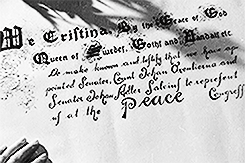 We Cristina, By the Grace of God
Queen of Sweden, Goths and Vandals etc.
do make known and testify that we have ap-
pointed Senator, Count Johan Oxenstierna and
Senator Johan Adler Salvius to represent
us at the Peace Congress